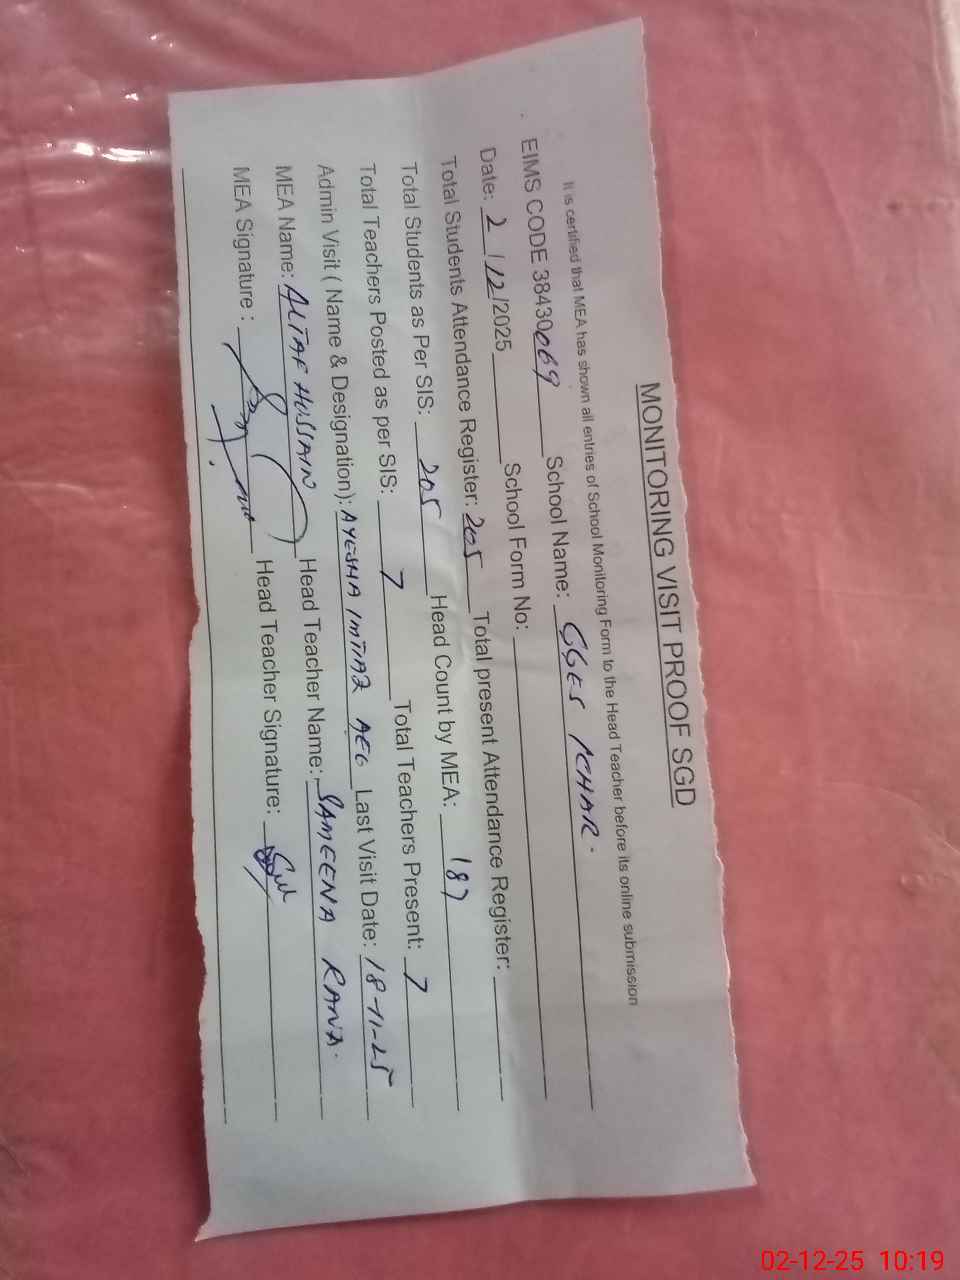 MONITORING VISIT PROOF SGD
It is certified that MEA has shown all entries of School Monitoring Form to the Head Teacher before its online submission
EIMS CODE 38430069 School Name: GGES ICHAR.
Date: 2/12/2025 School Form No:
Total Students Attendance Register: 205 Total present Attendance Register:
Total Students as Per SIS: 205 Head Count by MEA: 187
Total Teachers Posted as per SIS: 7 Total Teachers Present: 7
Admin Visit ( Name & Designation): AYESHA IMTIAZ AEO Last Visit Date: 18-11-25
MEA Name: ALTAF HUSSAIN Head Teacher Name: SAMEENA RANA.
MEA Signature : Head Teacher Signature:
02-12-25 10:19